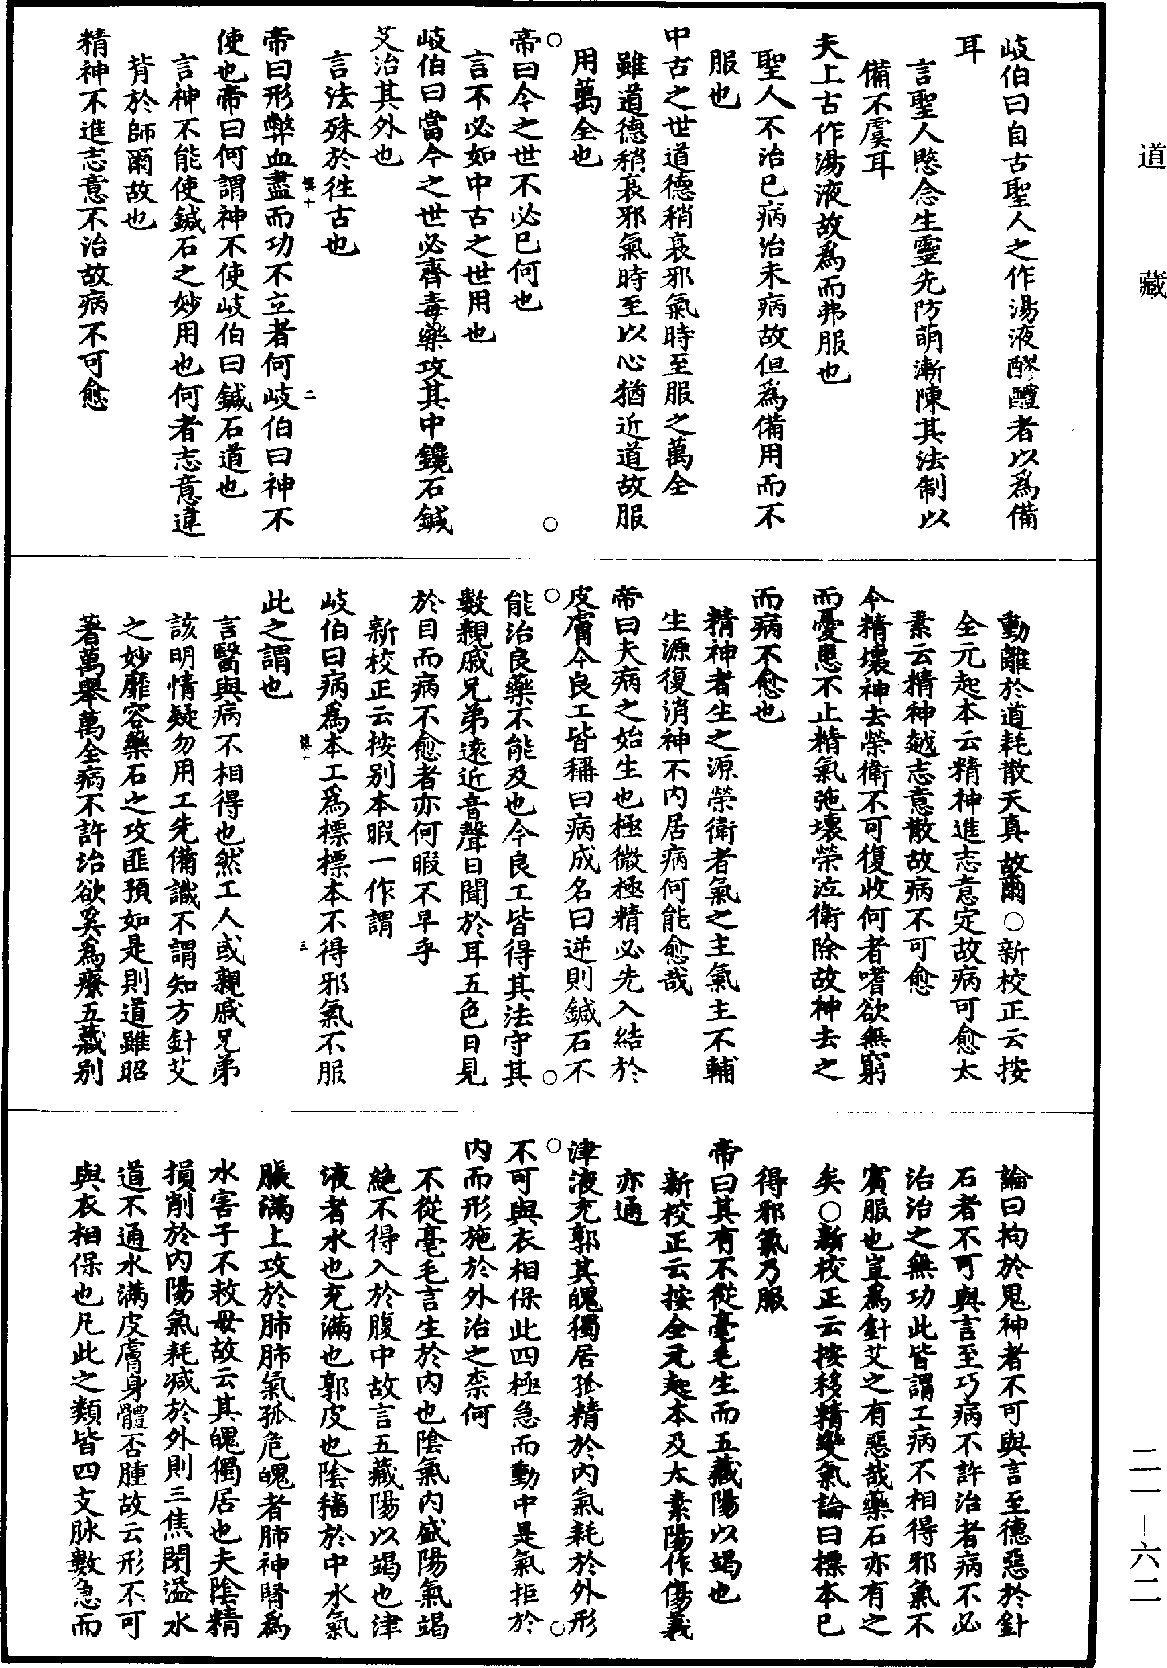 道藏
岐伯曰自古聖人之作湯液醪醴者以爲備
耳
言聖人愍念生靈先防萌漸陳其法制以
備不虞耳
夫上古作湯液故爲而弗服也
聖人不治已病治未病故但爲備用而不
服也
中古之世道德稍衰邪氣時至服之萬全
雖道德稍衰邪氣時至以心猶近道故服
用萬全也
帝曰今之世不必已何也
言不必如中古之世用也
岐伯曰當今之世必齊毒藥攻其中鑱石鍼
艾治其外也
言法殊於徃古也
帝曰形弊血盡而功不立者何岐伯曰神不
使也帝曰何謂神不使岐伯曰鍼石道也
言神不能使鍼石之妙用也何者志意違
背於師爾故也
精神不進志意不治故病不可愈
動離於道耗散天真故爾○新校正云按
全元起本云精神進志意定故病可愈太
素云精神越志意散故病不可愈
今精壞神去榮衛不可復收何者嗜欲無窮
而憂患不止精氣㢮壞榮泣衛除故神去之
而病不愈也
精神者生之源榮衛者氣之主氣主不輔
生源復消神不内居病何能愈哉
帝曰夫病之始生也極微極精必先入結於
皮膚今良工皆稱曰病成名曰逆則鍼石不
能治良藥不能及也今良工皆得其法守其
數親戚兄弟遠近音聲日聞於耳五色日見
於目而病不愈者亦何暇不早乎
新校正云按别本暇一作謂
岐伯曰病爲本工爲標標本不得邪氣不服
此之謂也
言醫與病不相得也然工人或親戚兄弟
該明情疑勿用工先備識不謂知方針艾
之妙靡容藥石之攻匪預如是則道雖昭
著萬舉萬全病不許治欲奚爲療五藏别
論曰拘於鬼神者不可與言至德惡於針
石者不可與言至巧病不許治者病不必
治治之無功此皆謂工病不相得邪氣不
賓服也豈爲針艾之有惡哉藥石亦有之
矣○新校正云按移精變氣論曰標本已
得邪氣乃服
帝曰其有不從毫毛生而五藏陽以竭也
新校正云按全元起本及太素陽作傷義
亦通
津液充郭其魄獨居孤精於内氣耗於外形
不可與衣相保此四極急而動中是氣拒於
内而形施於外治之柰何
不從毫毛言生於内也隂氣内盛陽氣竭
絶不得入於腹中故言五藏陽以竭也津
液者水也充滿也郭皮也隂穡於中水氣
脹滿上攻於肺肺氣孤危魄者肺神腎爲
水害子不救母故云其魄獨居也夫隂精
損削於内陽氣耗減於外則三焦閉溢水
道不通水滿皮膚身體否腫故云形不可
與衣相保也凡此之類皆四支脉數急而
二一-六二